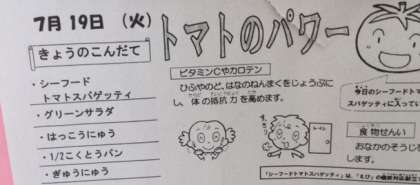 7月19日 (火)
トマトのパワー
きょうのこんだて
・シーフード
トマトスパゲッティ
・グリーンサラダ
・はっこうにゅう
・1/2こくとうパン
・ぎゅうにゅう
ビタミンCやカロテン
ひふやのど、はなのねんまくをじょうぶに
し、体の抵抗力を高めます。
今日のシーフードトマ
スパゲッティに入ってい
トイレ
食物せんい
おなかのそうじを
します。
「シーフードトマトスパゲッティ」は、「えび」の